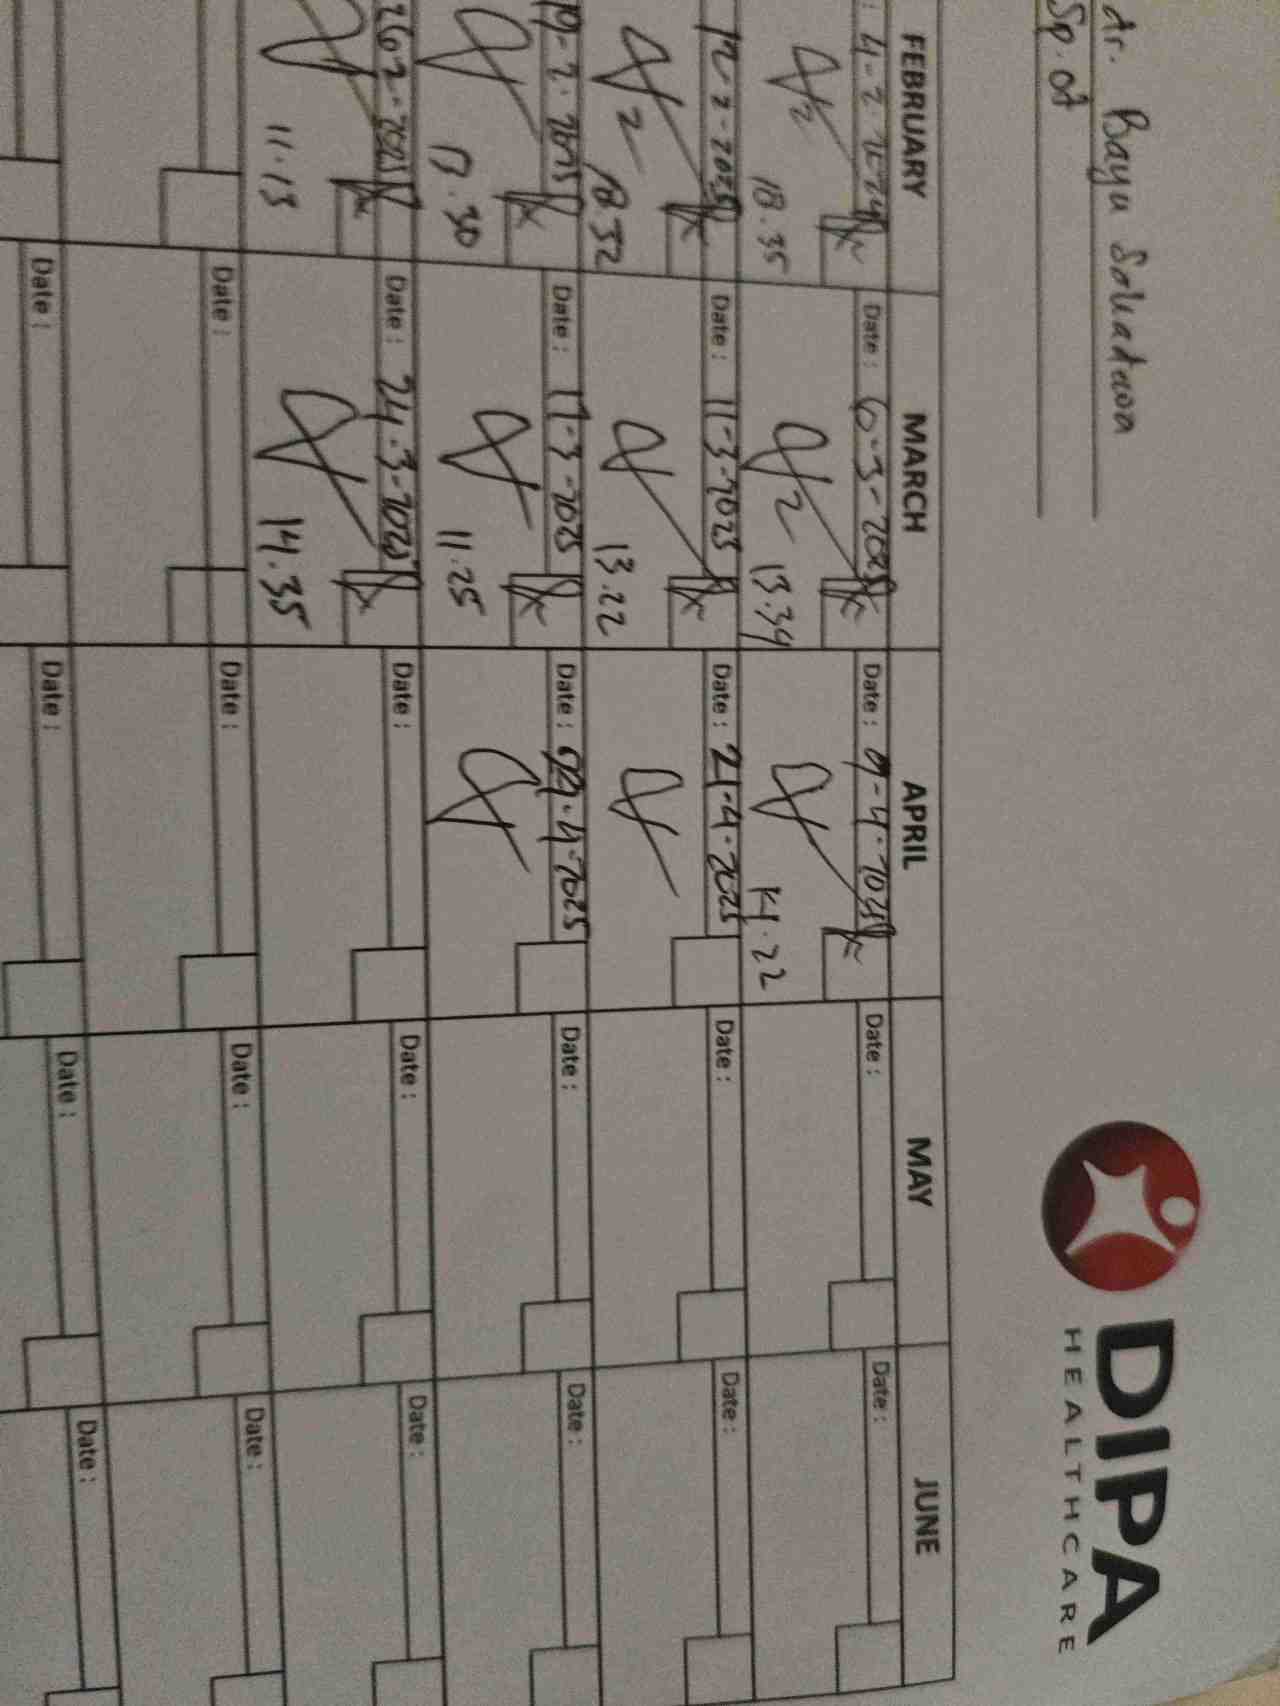 dr. Bayu Sakadewa
Sp. OT
DIPA
HEALTHCARE
FEBRUARY MARCH APRIL MAY JUNE
: 4-2-2025 Date : 6-3-2025 Date : 9-4-2025 Date : Date :
18.35 13.34 14.22
12-2-2025 Date : 11-3-2025 Date : 21-4-2025 Date : Date :
18.32 13.22
19-2-2025 Date : 17-3-2025 Date : 4-2025 Date : Date :
13.30 11.25
26-2-2025 Date : 24-3-2025 Date : Date : Date :
11.13 14.35
Date : Date : Date : Date :
Date : Date : Date : Date :